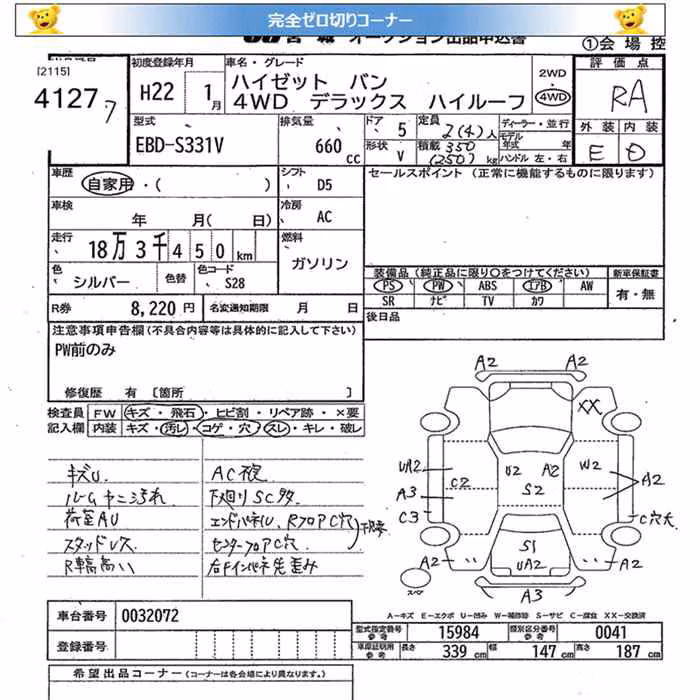 完全ゼロ切りコーナー
オークション出品申込書
①会場控
[2115]
41277
初度登録年月
H22 1月
車名・グレード
ハイゼット バン
4WD デラックス ハイルーフ
2WD
4WD
評価点
RA
外装 内装
E D
型式
EBD-S331V
排気量
660 cc
ドア 5
形状 V
定員 2(4)人
積載 350 (250) kg
ディーラー・並行
モデル年式 年
ハンドル 左・右
車歴
自家用・( )
シフト
D5
セールスポイント (正常に機能するものに限ります)
車検
年 月( 日)
冷房
AC
走行
18万3千450km
燃料
ガソリン
色
シルバー
色替
色コード
S28
装備品(純正品に限り○をつけてください)
新車保証書
PS PW ABS エアB AW
SR ナビ TV カワ
有・無
R券 8,220円
名変通知期限 月 日
後日品
注意事項申告欄(不具合内容等は具体的に記入して下さい)
PW前のみ
修復歴 有 [箇所 ]
検査員
記入欄
FW キズ・飛石・ヒビ割・リペア跡・×要
内装 キズ・汚レ・コゲ・穴・スレ・キレ・破レ
キズU.
ルームヤニ汚れ
荷室AU
スタッドレス
R車高高い
下廻りSC多
エンドパネル、RフロアC穴
センターフロアC穴
右Fインパネ先歪み
A2 A2
XX
UA2
A3
C3
C2
U2 A2
S2
W2
A2
C穴大
S1
UA2
A2
A2
A3
スペア
A-キズ E-エクボ U-凹み W-補修跡 S-サビ C-腐食 XX-交換済
車台番号 0032072
登録番号
型式指定番号 参考 15984
類別区分番号 参考 0041
車庫証明用 参考 長さ 339cm 幅 147cm 高さ 187cm
希望出品コーナー (コーナーは各会場により異なります。)